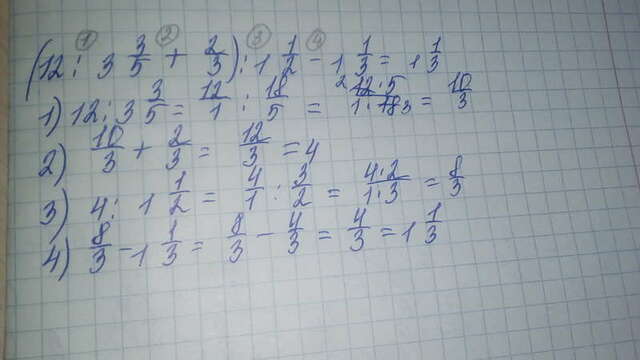 ① ② ③ ④
(12 : 3 3/5 + 2/3) : 1 1/2 - 1 1/3 = 1 1/3
1) 12 : 3 3/5 = 12/1 : 18/5 = 12·5/1·18 = 10/3
2) 10/3 + 2/3 = 12/3 = 4
3) 4 : 1 1/2 = 4/1 : 3/2 = 4·2/1·3 = 8/3
4) 8/3 - 1 1/3 = 8/3 - 4/3 = 4/3 = 1 1/3